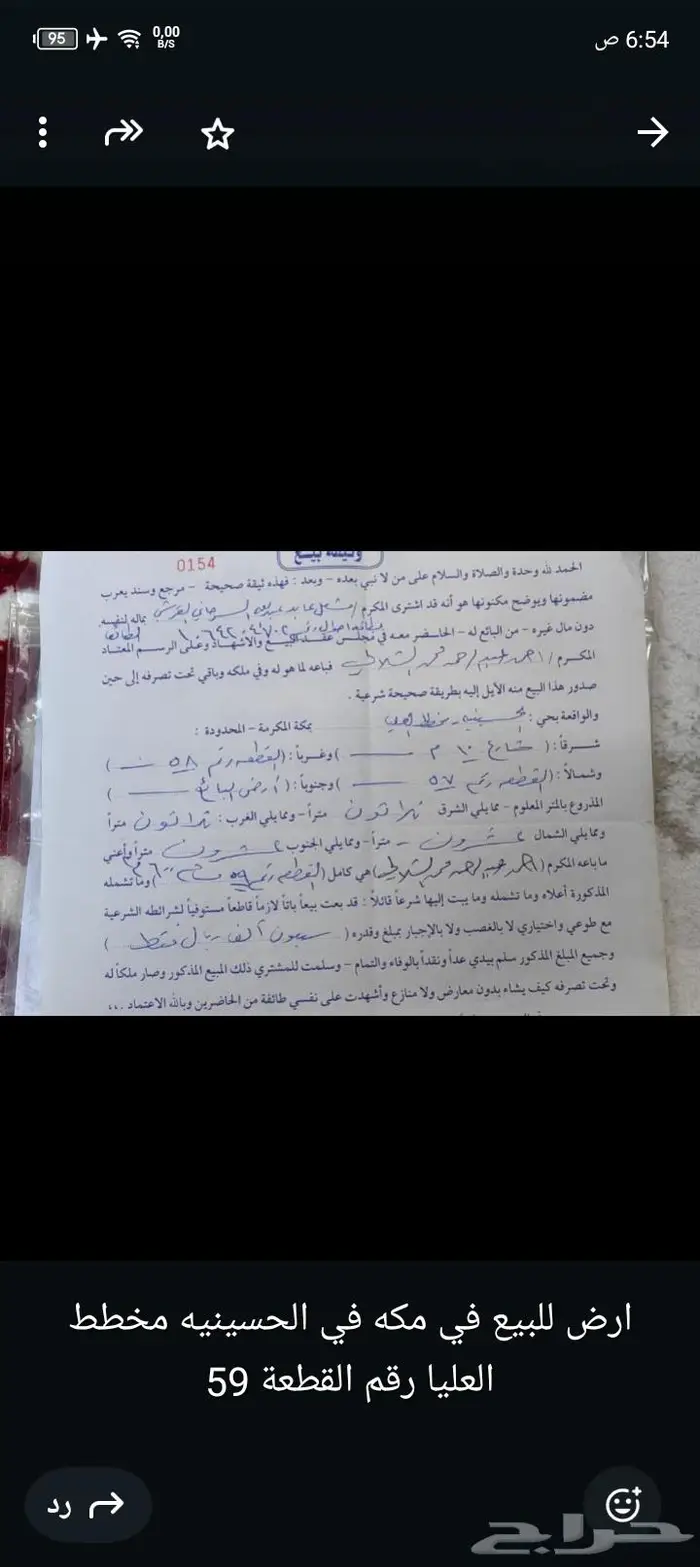 6:54 ص
0,00 B/S
95
وثيقة بيع
0154
الحمد لله وحدة والصلاة والسلام على من لا نبي بعده - وبعد : فهذه ثيقة صحيحة - مرجع وسند يعرب
مضمونها ويوضح مكنونها هو أنه قد اشترى المكرم / بماله لنفسه
دون مال غيره - من البائع له - الحاضر معه في مجلس عقد البيع والأشهاد وعلى الرسم المعتاد
المكرم / احمد فباعه لما هو له وفي ملكه وباقي تحت تصرفه إلى حين
صدور هذا البيع منه الآيل إليه بطريقة صحيحة شرعية .
والواقعة بحي : مخطط بمكة المكرمة - المحدودة :
شرقاً : ( شارع ١٠ م ) وغرباً : ( القطعه رقم ٥٨ )
وشمالاً : ( القطعه رقم ٥٧ ) وجنوباً : ( أرض البائع )
المذروع بالمتر المعلوم - ممايلي الشرق ثلاثون متراً - وممايلي الغرب : ثلاثون متراً
وممايلي الشمال عشرون - متراً - وممايلي الجنوب عشرون متراً وأعني
ما باعه المكرم ( احمد ) هي كامل ( القطعه رقم ٥٩ ) وما تشمله
المذكورة أعلاه وما تشمله وما يبت إليها شرعاً قائلاً : قد بعت بيعاً باتاً لازماً قاطعاً مستوفياً لشرائطه الشرعية
مع طوعي واختياري لا بالغصب ولا بالإجبار بمبلغ وقدره ( سبعون ألف ريال فقط )
وجميع المبلغ المذكور سلم بيدي عداً ونقداً بالوفاء والتمام - وسلمت للمشتري ذلك المبيع المذكور وصار ملكاً له
وتحت تصرفه كيف يشاء بدون معارض ولا منازع وأشهدت على نفسي طائفة من الحاضرين وبالله الاعتماد . ,,
ارض للبيع في مكه في الحسينيه مخطط
العليا رقم القطعة 59
رد
حراج